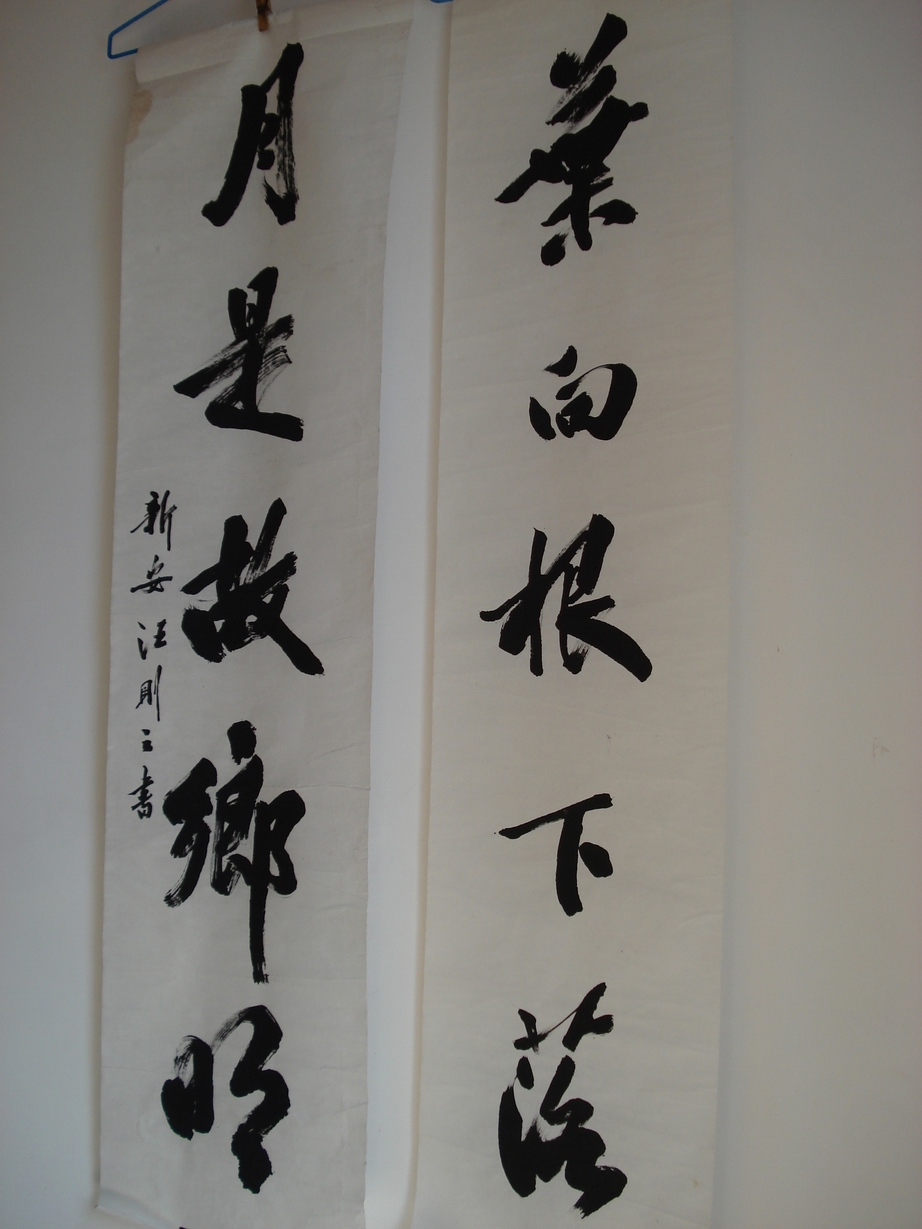 葉向根下落
月是故鄉明
新安汪則之書